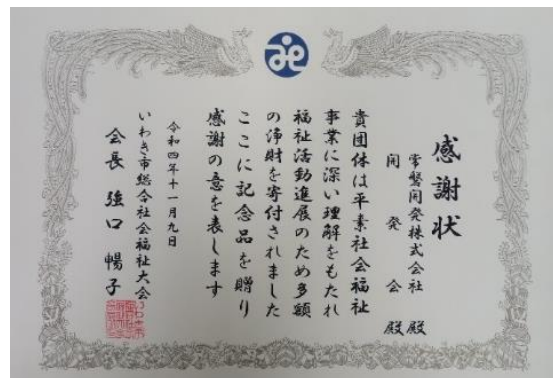 感謝状
常磐開発株式会社 殿
開発会 殿
貴団体は平素社会福祉
事業に深い理解をもたれ
福祉活動進展のため多額
の浄財を寄付されました
ここに記念品を贈り
感謝の意を表します
令和四年十一月九日
いわき市総合社会福祉大会
会長 強口暢子